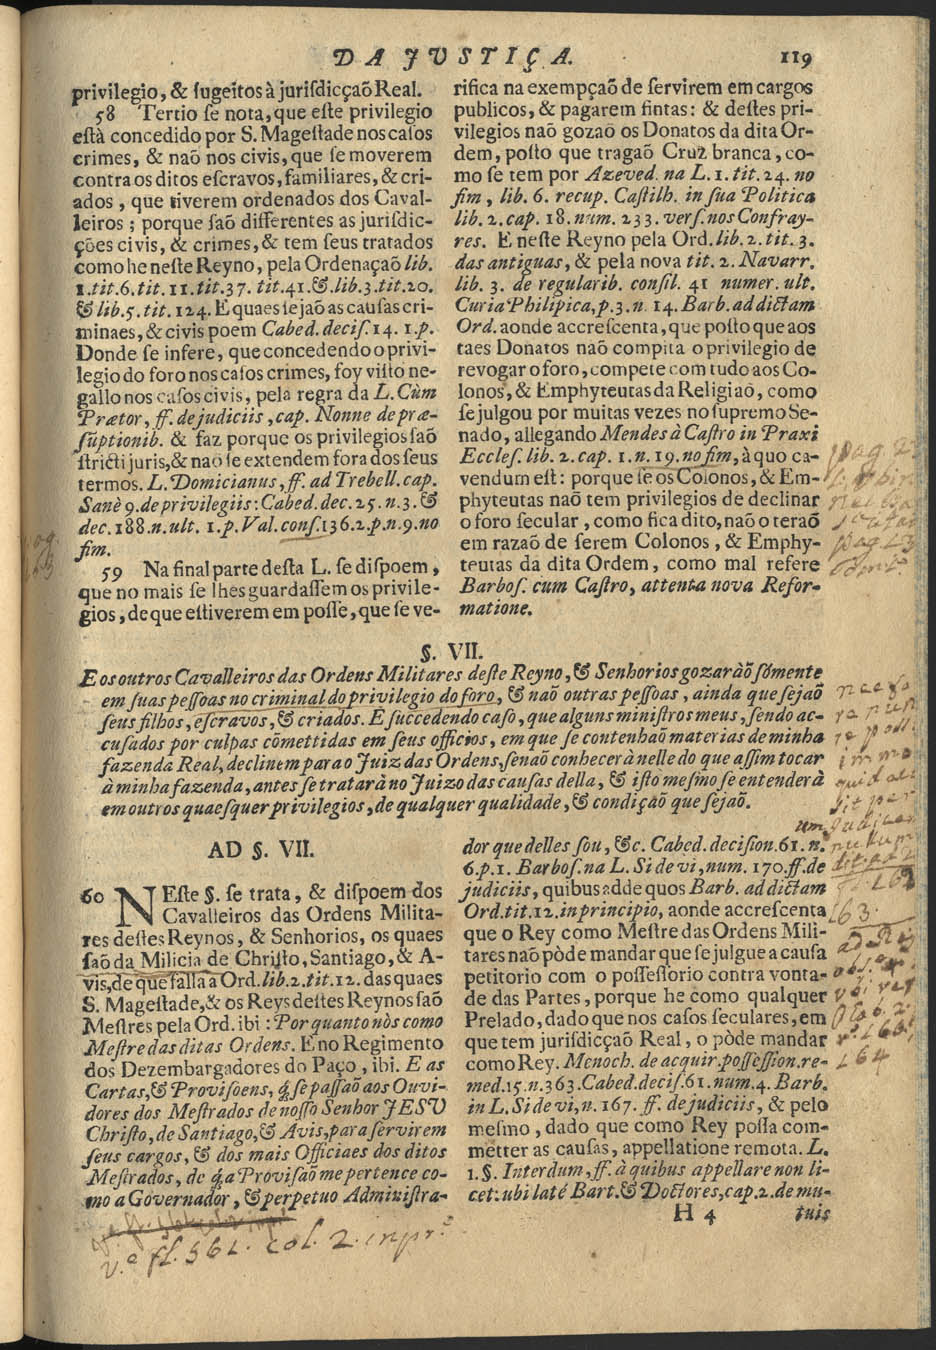 DA JUSTIÇA. 119
privilegio, & sugeitos à jurisdicçaõ Real.
58 Tertio se nota, que este privilegio
està concedido por S. Magestade nos casos
crimes, & naõ nos civis, que se moverem
contra os ditos escravos, familiares, & cri-
ados, que tiverem ordenados dos Caval-
leiros; porque saõ differentes as jurisdic-
ções civis, & crimes, & tem seus tratados
como he neste Reyno, pela Ordenaçaõ lib.
1. tit. 6. tit. 11. tit. 37. tit. 41. &. lib. 3. tit. 20.
& lib. 5. tit. 124. E quaes sejaõ as causas cri-
minaes, & civis poem Cabed. decis. 14. 1. p.
Donde se infere, que concedendo o privi-
legio do foro nos casos crimes, foy visto ne-
gallo nos casos civis, pela regra da L. Cùm
Prætor, ff. de judiciis, cap. Nonne de præ-
sũptionib. & faz porque os privilegios saõ
stricti juris, & naõ se extendem fora dos seus
termos. L. Domicianus, ff. ad Trebell. cap.
Sanè 9. de privilegiis: Cabed. dec. 25. n. 3. &
dec. 188. n. ult. 1. p. Val. cons. 136. 2. p. n. 9. no
fim.
59 Na final parte desta L. se dispoem,
que no mais se lhes guardassem os privile-
gios, de que estiverem em posse, que se ve-
rifica na exempçaõ de servirem em cargos
publicos, & pagarem fintas: & destes pri-
vilegios naõ gozaõ os Donatos da dita Or-
dem, posto que tragaõ Cruz branca, co-
mo se tem por Azeved. na L. 1. tit. 24. no
fim, lib. 6. recup. Castilh. in sua Politica
lib. 2. cap. 18. num. 233. vers. nos Confray-
res. E neste Reyno pela Ord. lib. 2. tit. 3.
das antiguas, & pela nova tit. 2. Navarr.
lib. 3. de regularib. consil. 41 numer. ult.
Curia Philipica, p. 3. n. 14. Barb. ad dictam
Ord. aonde accrescenta, que posto que aos
taes Donatos naõ compita o privilegio de
revogar o foro, compete com tudo aos Co-
lonos, & Emphyteutas da Religiaõ, como
se julgou por muitas vezes no supremo Se-
nado, allegando Mendes à Castro in Praxi
Eccles. lib. 2. cap. 1. n. 19. no fim, à quo ca-
vendum est: porque se os Colonos, & Em-
phyteutas naõ tem privilegios de declinar
o foro secular, como fica dito, naõ o teraõ
em razaõ de serem Colonos, & Emphy-
teutas da dita Ordem, como mal refere
Barbos. cum Castro, attenta nova Refor-
matione.
§. VII.
E os outros Cavalleiros das Ordens Militares deste Reyno, & Senhorios gozaràõ sómente
em suas pessoas no criminal do privilegio do foro, & naõ outras pessoas, ainda que sejaõ
seus filhos, escravos, & criados. E succedendo caso, que alguns ministros meus, sendo ac-
cusados por culpas cõmettidas em seus officios, em que se contenhaõ materias de minha
fazenda Real, declinem para o Juiz das Ordens, senaõ conhecerà nelle do que assim tocar
à minha fazenda, antes se tratarà no Juizo das causas della, & isto mesmo se entenderà
em outros quaesquer privilegios, de qualquer qualidade, & condiçaõ que sejaõ.
AD §. VII.
60 NEste §. se trata, & dispoem dos
Cavalleiros das Ordens Milita-
res destes Reynos, & Senhorios, os quaes
saõ da Milicia de Christo, Santiago, & A-
vis, de que falla a Ord. lib. 2. tit. 12. das quaes
S. Magestade, & os Reys destes Reynos saõ
Mestres pela Ord. ibi: Por quanto nòs como
Mestre das ditas Ordens. E no Regimento
dos Dezembargadores do Paço, ibi. E as
Cartas, & Provisoens, q̃ se passaõ aos Ouvi-
dores dos Mestrados de nosso Senhor JESV
Christo, de Santiago, & Avis, para servirem
seus cargos, & dos mais Officiaes dos ditos
Mestrados, de q̃ a Provisaõ me pertence co-
mo a Governador, & perpetuo Administra-
dor que delles sou, &c. Cabed. decision. 61. n.
6. p. 1. Barbos. na L. Si de vi, num. 170. ff. de
judiciis, quibus adde quos Barb. ad dictam
Ord. tit. 12. in principio, aonde accrescenta
que o Rey como Mestre das Ordens Mili-
tares naõ pòde mandar que se julgue a causa
petitorio com o possessorio contra vonta-
de das Partes, porque he como qualquer
Prelado, dado que nos casos seculares, em
que tem jurisdicçaõ Real, o pòde mandar
como Rey. Menoch. de acquir. possession. re-
med. 15. n. 363. Cabed. decis. 61. num. 4. Barb.
in L. Si de vi, n. 167. ff. de judiciis, & pelo
mesmo, dado que como Rey possa com-
metter as causas, appellatione remota. L.
1. §. Interdum, ff. à quibus appellare non li-
cet: ubi laté Bart. & Doctores, cap. 2. de mu-
H 4 tuis
v.e fl. 561. col. 2. in pr.º
163.
164